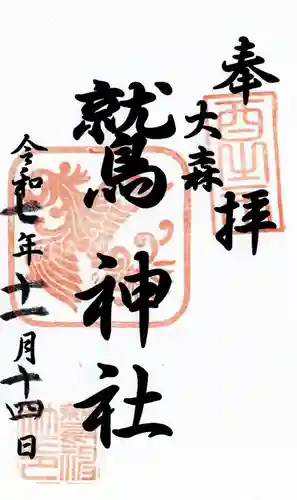 奉拝
大森
鷲神社
令和七年十一月十四日